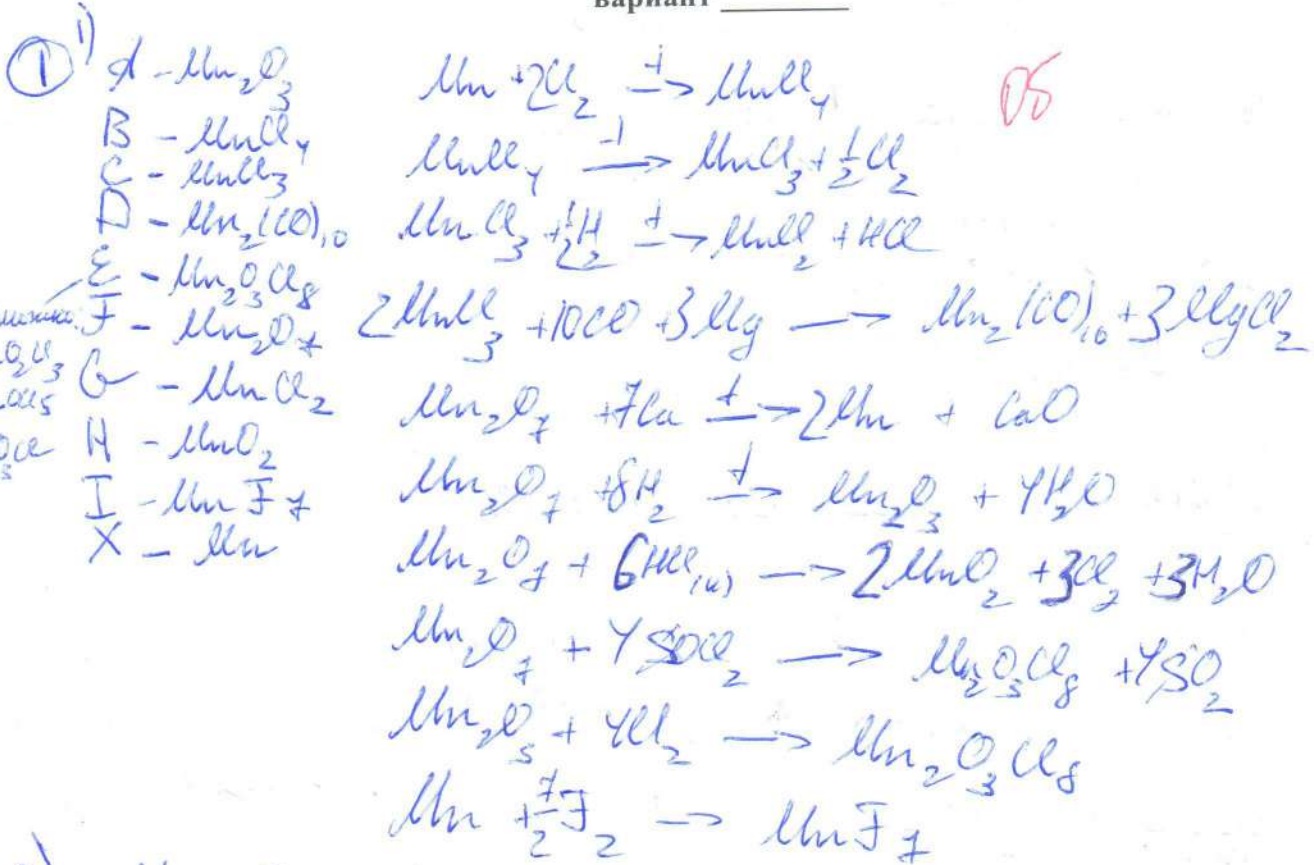 вариант
① 1) A - Mn₂O₃
B - MnCl₄
C - MnCl₃
D - Mn₂(CO)₁₀
E - Mn₂O₃Cl₈
F - Mn₂O₇
G - MnCl₂
H - MnO₂
I - MnF₇
X - Mn
Mn + 2Cl₂ →(t) MnCl₄
MnCl₄ →(t) MnCl₃ + ½Cl₂
MnCl₃ + ½H₂ →(t) MnCl₂ + HCl
2MnCl₃ + 10CO + 3Mg → Mn₂(CO)₁₀ + 3MgCl₂
Mn₂O₇ + 7Ca →(t) 2Mn + CaO
Mn₂O₇ + 8H₂ →(t) Mn₂O₃ + 4H₂O
Mn₂O₇ + 6HCl₍к₎ → 2MnO₂ + 3Cl₂ + 3H₂O
Mn₂O₇ + 4SOCl₂ → Mn₂O₃Cl₈ + 4SO₂
Mn₂O₅ + 4Cl₂ → Mn₂O₃Cl₈
Mn + 7/2 F₂ → MnF₇
0б